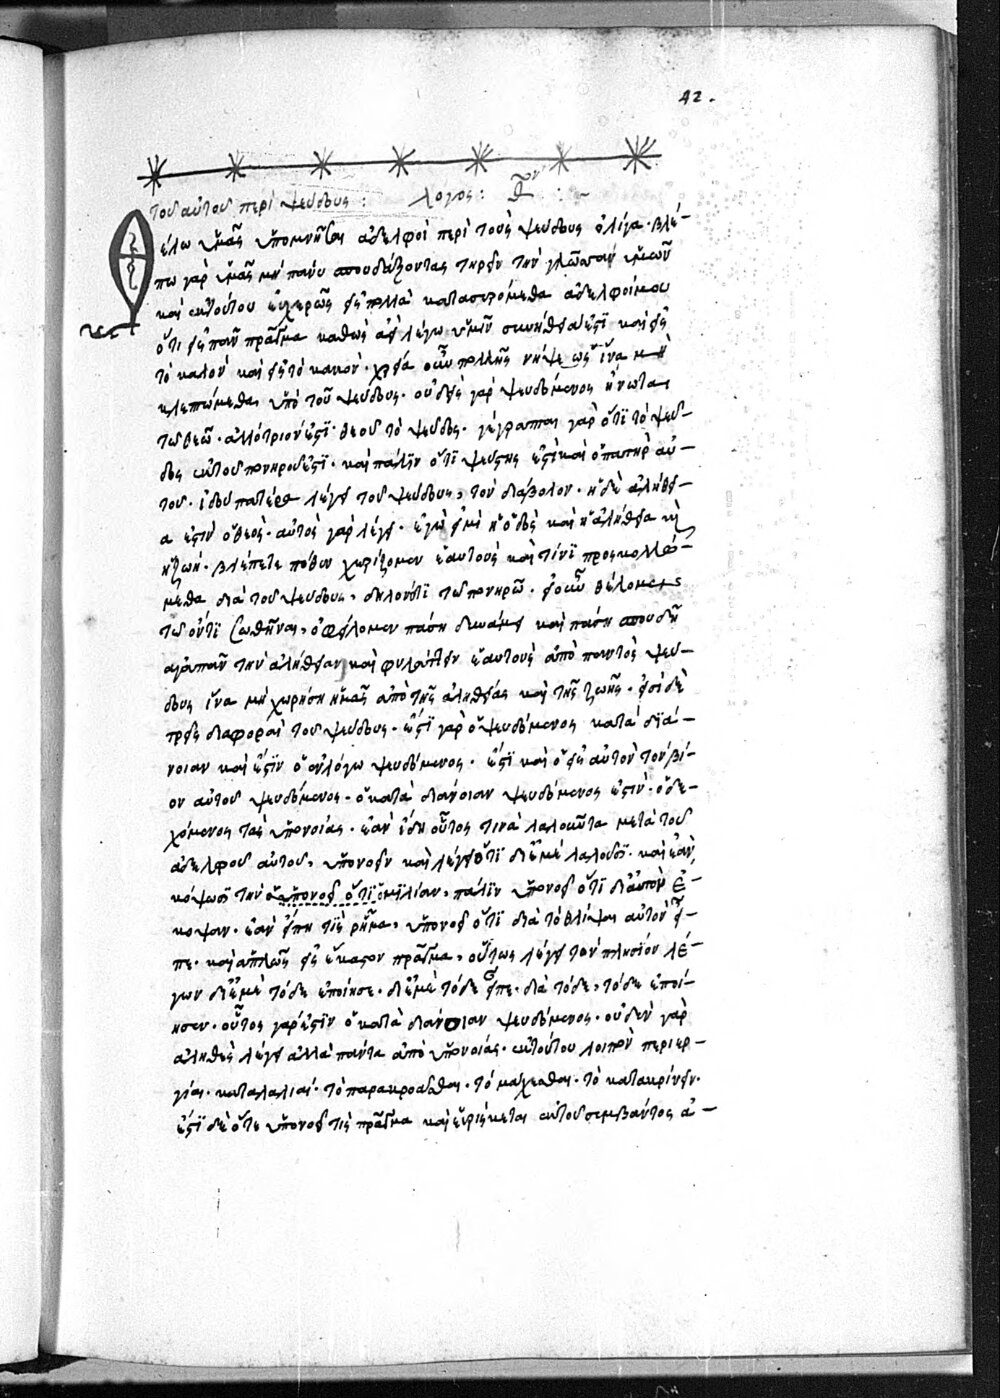 42.
Τοῦ αὐτοῦ περὶ ψεύδους: λόγος: θ ον :~
Θέλω ὑμᾶς ὑπομνῆσαι ἀδελφοὶ περὶ τοῦ ψεύδους ὀλίγα· βλέ-
πω γὰρ ὑμᾶς μὴ πάνυ σπουδάζοντας τηρεῖν τὴν γλῶσσαν ὑμῶν
καὶ ἐκ τούτου εὐχερῶς εἰς πολλὰ κατασυρόμεθα ἀδελφοί μου
ὅτι εἰς πᾶν πρᾶγμα καθὼς ἀεὶ λέγω ὑμῖν συνήθεια ἐστὶ καὶ εἰς
τὸ καλὸν καὶ εἰς τὸ κακόν· χρεία οὖν πολλῆς νήψεως ἵνα μὴ
κλεπώμεθα ὑπὸ τοῦ ψεύδους· οὐδεὶς γὰρ ψευδόμενος ἥνωται
τῷ θεῷ· ἀλλότριον ἐστὶ θεοῦ τὸ ψεῦδος· γέγραπται γὰρ ὅτι τὸ ψεῦ-
δος ἐκ τοῦ πονηροῦ ἐστί· καὶ πάλιν ὅτι ψεύστης ἐστὶ καὶ ὁ πατὴρ αὐ-
τοῦ· ἰδοὺ πατέρα λέγει τοῦ ψεύδους, τὸν διάβολον· ἡ δὲ ἀλήθει-
α ἐστὶν ὁ θεὸς· αὐτὸς γὰρ λέγει· ἐγώ εἰμι ἡ ὁδὸς καὶ ἡ ἀλήθεια καὶ
ἡ ζωή· βλέπετε πόθεν χωρίζομεν ἑαυτοὺς καὶ τίνι προσκολλώ-
μεθα διὰ τοῦ ψεύδους, δηλονότι τῷ πονηρῷ· εἰ οὖν θέλομεν
τῷ ὄντι σωθῆναι, ὀφείλομεν πάσῃ δυνάμει καὶ πάσῃ σπουδῇ
ἀγαπᾶν τὴν ἀλήθειαν καὶ φυλάττειν ἑαυτοὺς ἀπὸ παντὸς ψεύ-
δους ἵνα μὴ χωρήσῃ ἡμᾶς ἀπὸ τῆς ἀληθείας καὶ τῆς ζωῆς· εἰσὶ δὲ
τρεῖς διαφοραὶ τοῦ ψεύδους· ἔστι γὰρ ὁ ψευδόμενος κατὰ διά-
νοιαν καὶ ἔστιν ὁ ἐν λόγῳ ψευδόμενος· ἔστι καὶ ὁ εἰς αὐτὸν τὸν βί-
ον αὐτοῦ ψευδόμενος· ὁ κατὰ διάνοιαν ψευδόμενος ἐστὶν· ὁ δε-
χόμενος τὰς ὑπονοίας· ἐὰν ἴδῃ οὗτος τινὰ λαλοῦντα μετὰ τοῦ
ἀδελφοῦ αὐτοῦ, ὑπονοεῖ καὶ λέγει ὅτι δι' ἐμὲ λαλοῦσι· καὶ ἐὰν
κόψωσι τὴν ὁμιλίαν, πάλιν ὑπονοεῖ ὅτι δι' αὐτὸν ἔ-
κοψαν· ἐὰν εἴπῃ τὶς ῥῆμα, ὑπονοεῖ ὅτι διὰ τὸ θλίψαι αὐτὸν εἶ-
πε· καὶ ἁπλῶς εἰς ἕκαστον πρᾶγμα, οὕτως λέγει τὸν πλησίον λέ-
γων δι' ἐμὲ τόδε ἐποίησε· δι' ἐμὲ τόδε εἶπε· διὰ τόδε, τόδε ἐποί-
ησεν· οὗτος γάρ ἐστιν ὁ κατὰ διάνοιαν ψευδόμενος· οὐδὲν γὰρ
ἀληθὲς λέγει ἀλλὰ πάντα ἀπὸ ὑπονοίας· ἐκ τούτου λοιπὸν περιερ-
γίαι· καταλαλιαί· τὸ παρακροᾶσθαι· τὸ μάχεσθαι· τὸ κατακρίνειν·
ἔστι δὲ ὅτε ὑπονοεῖ τὶς πρᾶγμα καὶ εὑρίσκεται ἐκ τοῦ συμβάντος ἀ-